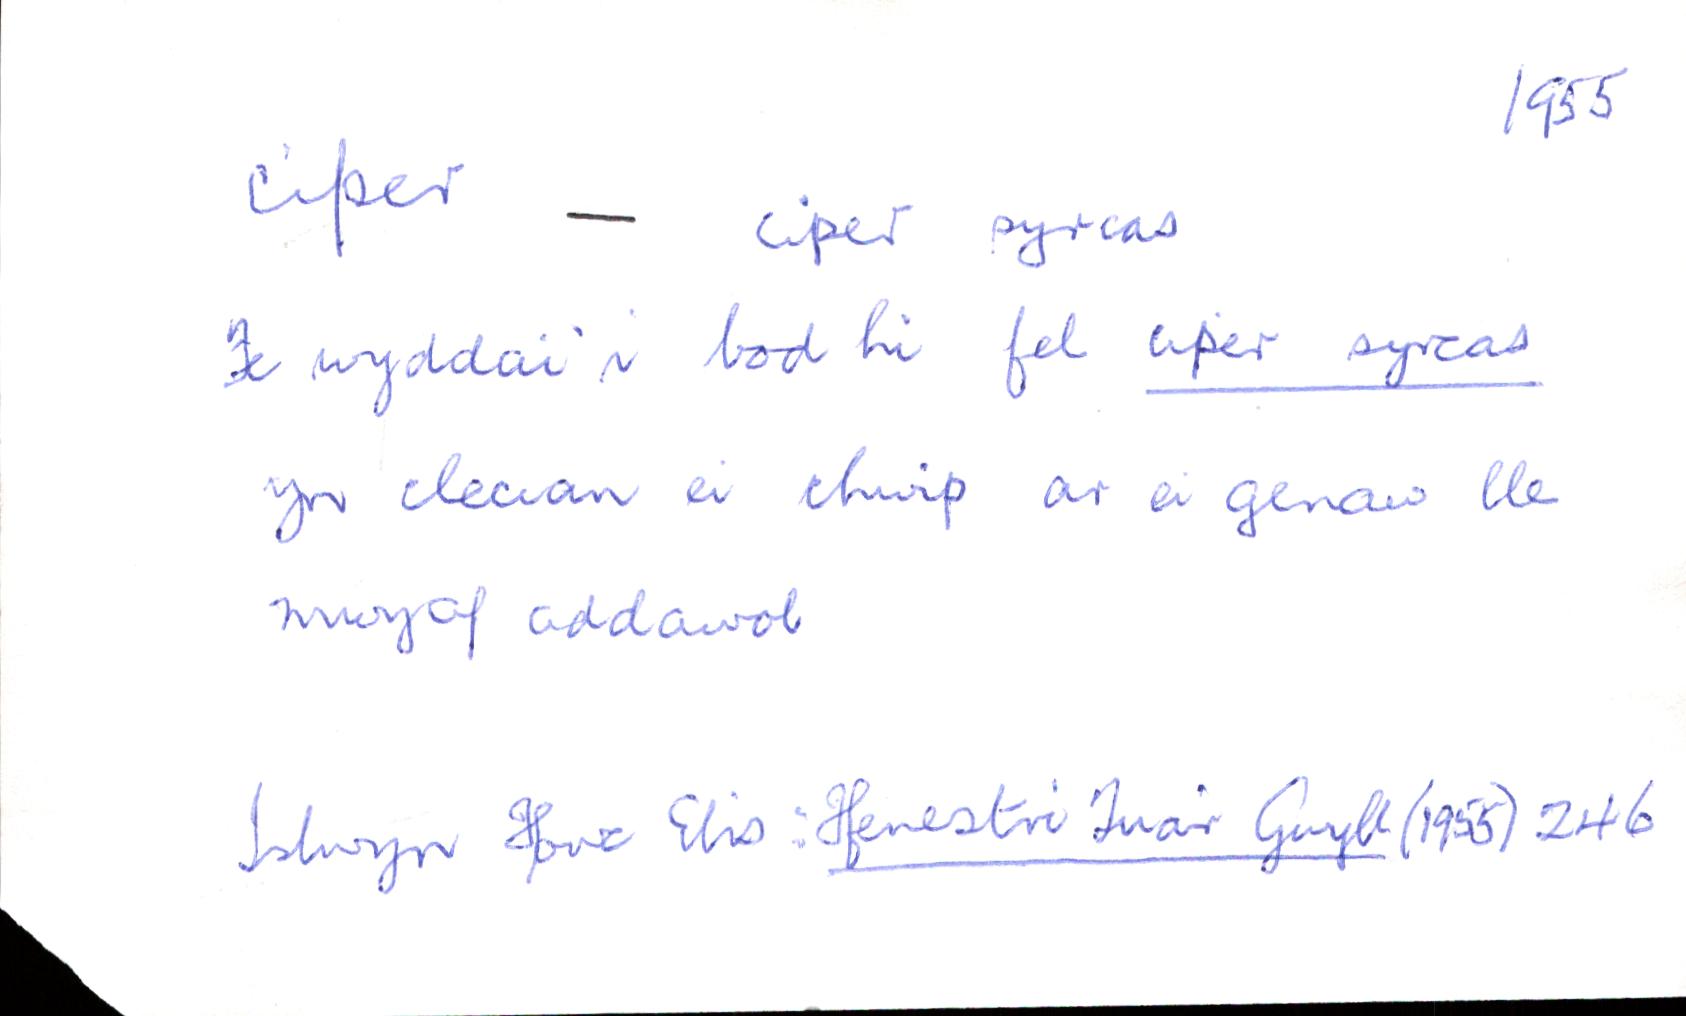 1955
ciper — ciper syrcas
Fe wyddai'i bod hi fel ciper syrcas
yn clecian ei chwip ar ei genaw lle
mwyaf addawol
Islwyn Ffowc Elis: Ffenestri Tua'r Gwyll (1955) 246